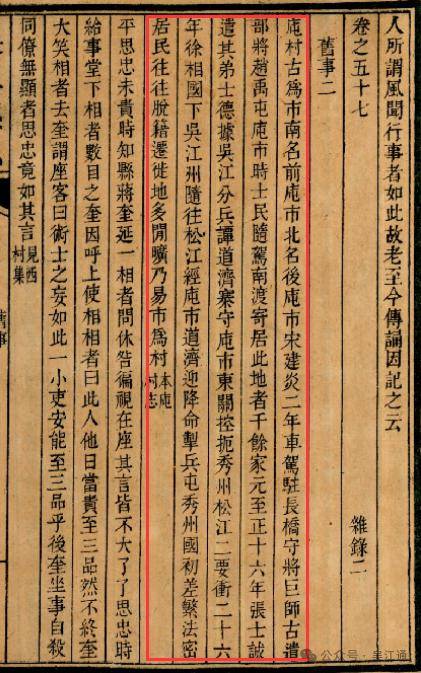 人所謂風聞行事者如此故老至今傳誦因記之云
卷之五十七　　雜錄二
舊事二
庉村古爲市南名前庉市北名後庉市宋建炎二年車駕駐長橋守將巨師古遣
部將趙禹屯庉市時士民隨駕南渡寄居此地者千餘家元至正十六年張士誠
遣其弟士德據吳江分兵譚道濟寨守庉市東關控扼秀州松江二要衝二十六
年徐相國下吳江州隨往松江經庉市道濟迎降命掣兵屯秀州國初差繁法密
居民往往脫籍遷徙地多閒曠乃易市爲村本庉村志
平思忠未貴時知縣蔣奎延一相者問休咎徧視在座其言皆不大了了思忠時
給事堂下相者數目之奎因呼上使相相者曰此人他日當貴至三品然不終奎
大笑相者去奎謂座客曰術士之妄如此一小吏安能至三品乎後奎坐事自殺
同僚無顯者思忠竟如其言見西村集
舊事
公众号·吴江通